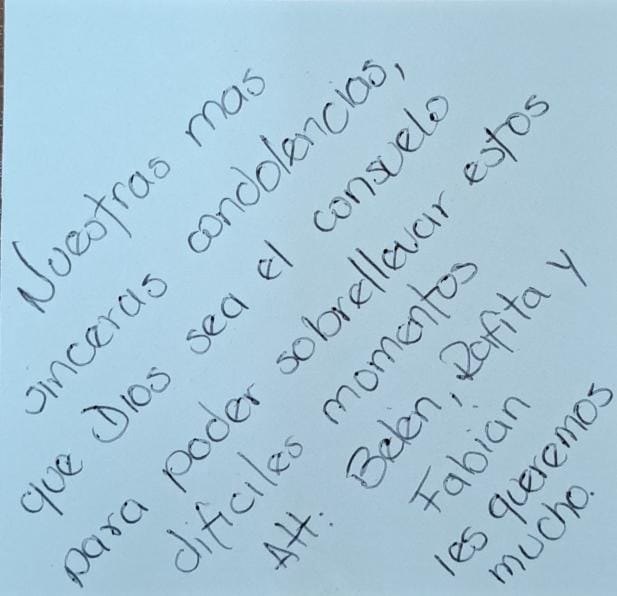 Nuestras mas
sinceras condolencias,
que Dios sea el consuelo
para poder sobrellevar estos
dificiles momentos
Att: Belén, Rafita y
Fabian
les queremos
mucho.